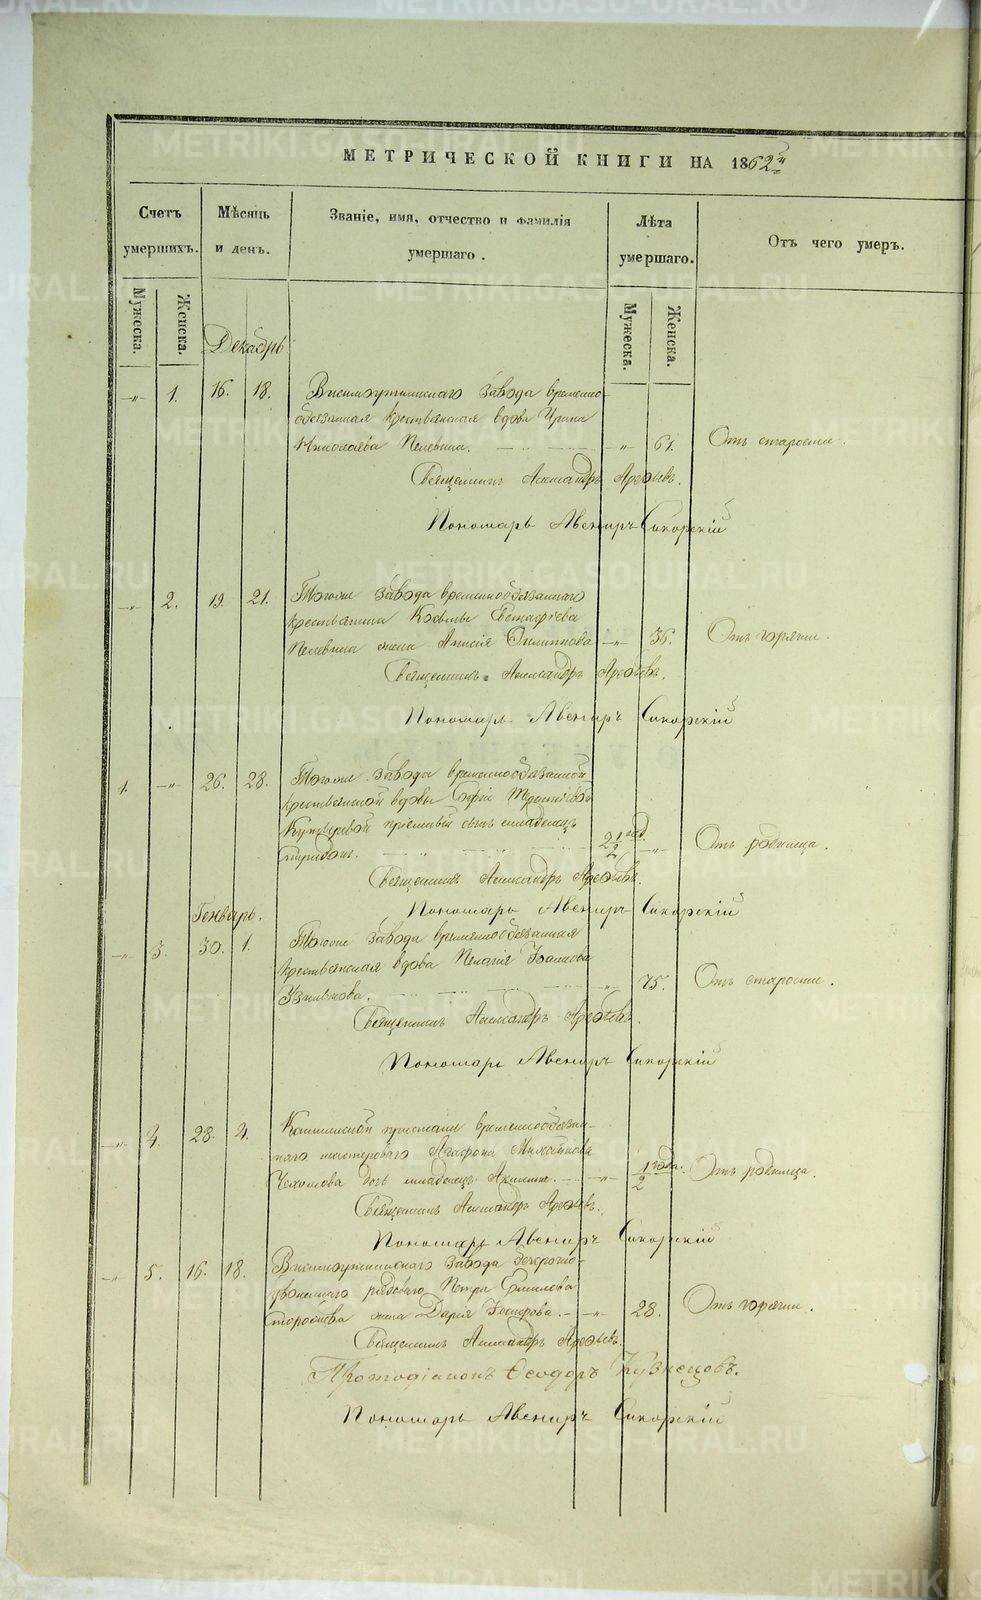 МЕТРИЧЕСКОЙ КНИГИ НА 1862й
Счетъ умершихъ.
Мѣсяцъ и день.
Званіе, имя, отчество и фамилія умершаго.
Лѣта умершаго.
Отъ чего умеръ.
Мужеска.
Женска.
Мужеска.
Женска.
Декабрь
-„- 1. 16. 18. завода временно-
обязанная крестьянская вдова Ирина
Николаева Пелевина. „ 61. Отъ старости.
Священникъ Александръ Арефьевъ.
Пономарь Авениръ Сикорскій
-„- 2. 19. 21. Тогоже завода временнообязаннаго
крестьянина Козьмы Евстафіева
Пелевина жена Анисія Филиппова -„- 36. Отъ горячки.
Священникъ Александръ Арефьевъ.
Пономарь Авениръ Сикорскій
1. -„- 26. 28. Тогоже завода временнообязанной
крестьянской вдовы Софіи
сынъ младенецъ
Спиридонъ. 2 1/2 год. -„- Отъ родимца.
Священникъ Александръ Арефьевъ.
Пономарь Авениръ Сикорскій
Генварь.
-„- 3. 30. 1. Тогоже завода временнообязанная
крестьянская вдова Пелагія
„ 75. Отъ старости.
Священникъ Александръ Арефьевъ.
Пономарь Авениръ Сикорскій
-„- 4. 28. 4. пристани временнообязан-
наго мастероваго Агафона
дочь младенецъ Акилина. -„- 1/2 года. Отъ родимца.
Священникъ Александръ Арефьевъ.
Пономарь Авениръ Сикорскій
-„- 5. 16. 18. завода безсрочно-
рядоваго Петра
жена Дарія -„- 28. Отъ горячки.
Священникъ Александръ Арефьевъ.
Протодіаконъ Ѳеодоръ Кузнецовъ.
Пономарь Авениръ Сикорскій
METRIKI.GASO-URAL.RU